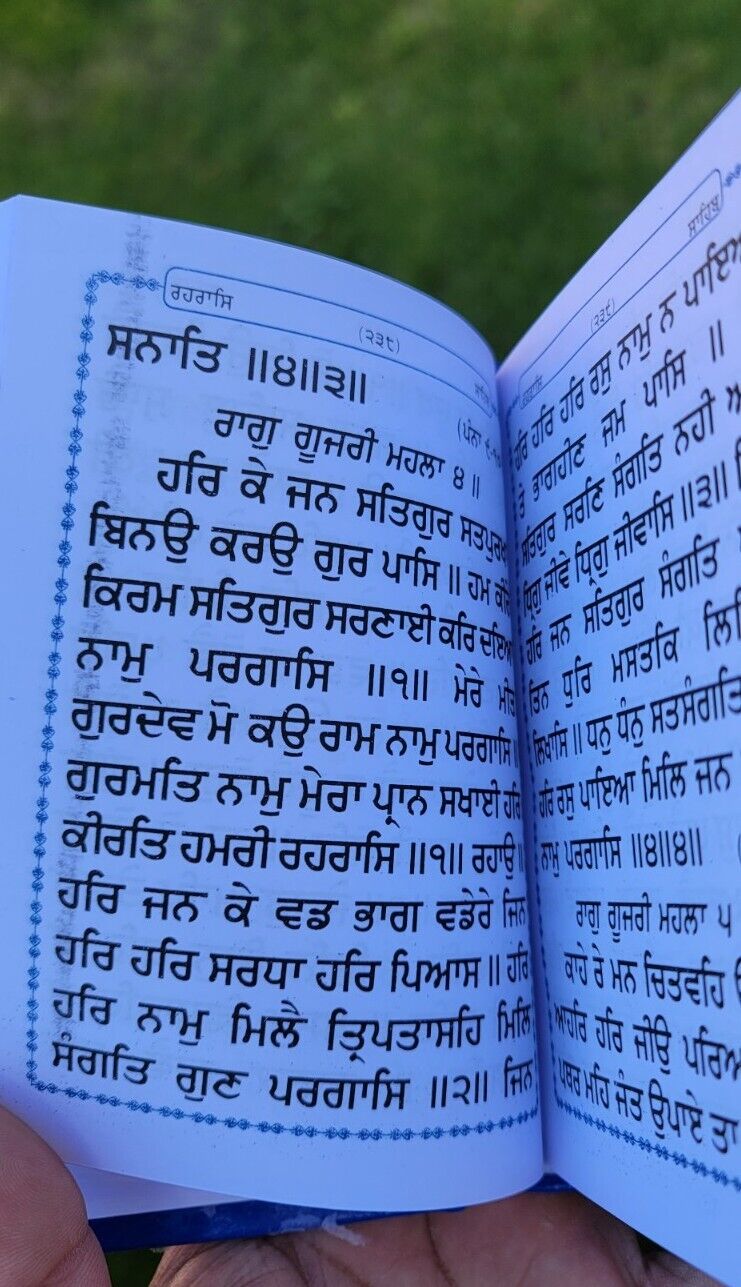 ਰਹਰਾਸਿ
(੨੩੮)
ਸਨਾਤਿ ॥੪॥੩॥
(ਪੰਨਾ
ਰਾਗੁ ਗੂਜਰੀ ਮਹਲਾ ੪ ॥
ਹਰਿ ਕੇ ਜਨ ਸਤਿਗੁਰ
ਬਿਨਉ ਕਰਉ ਗੁਰ ਪਾਸਿ ॥ ਹਮ
ਕਿਰਮ ਸਤਿਗੁਰ ਸਰਣਾਈ ਕਰਿ
ਨਾਮੁ ਪਰਗਾਸਿ ॥੧॥ ਮੇਰੇ
ਗੁਰਦੇਵ ਮੋ ਕਉ ਰਾਮ ਨਾਮੁ ਪਰਗਾਸਿ
ਗੁਰਮਤਿ ਨਾਮੁ ਮੇਰਾ ਪ੍ਰਾਨ ਸਖਾਈ ਹਰਿ
ਕੀਰਤਿ ਹਮਰੀ ਰਹਰਾਸਿ ॥੧॥ ਰਹਾਉ ॥
ਹਰਿ ਜਨ ਕੇ ਵਡ ਭਾਗ ਵਡੇਰੇ ਜਿਨ
ਹਰਿ ਹਰਿ ਸਰਧਾ ਹਰਿ ਪਿਆਸ ॥ ਹਰਿ
ਹਰਿ ਨਾਮੁ ਮਿਲੈ ਤ੍ਰਿਪਤਾਸਹਿ ਮਿਲਿ
ਸੰਗਤਿ ਗੁਣ ਪਰਗਾਸਿ ॥੨॥ ਜਿਨ
(੨੩੯)
ਸਾਹਿਬ
ਹਰਿ ਹਰਿ ਹਰਿ ਰਸੁ ਨਾਮੁ ਨ
ਤੇ ਭਾਗਹੀਣ ਜਮ ਪਾਸਿ ॥
ਸਤਿਗੁਰ ਸਰਣਿ ਸੰਗਤਿ ਨਹੀ
ਧ੍ਰਿਗੁ ਜੀਵੇ ਧ੍ਰਿਗੁ ਜੀਵਾਸਿ ॥੩॥
ਹਰਿ ਜਨ ਸਤਿਗੁਰ ਸੰਗਤਿ
ਤਿਨ ਧੁਰਿ ਮਸਤਕਿ
ਲਿਖਾਸਿ ॥ ਧਨੁ ਧੰਨੁ ਸਤਸੰਗਤਿ
ਹਰਿ ਰਸੁ ਪਾਇਆ ਮਿਲਿ ਜਨ
ਨਾਮੁ ਪਰਗਾਸਿ ॥੪॥੪॥
ਰਾਗੁ ਗੂਜਰੀ ਮਹਲਾ ੫
ਕਾਹੇ ਰੇ ਮਨ ਚਿਤਵਹਿ
ਆਹਰਿ ਹਰਿ ਜੀਉ
ਪਥਰ ਮਹਿ ਜੰਤ ਉਪਾਏ ਤਾ